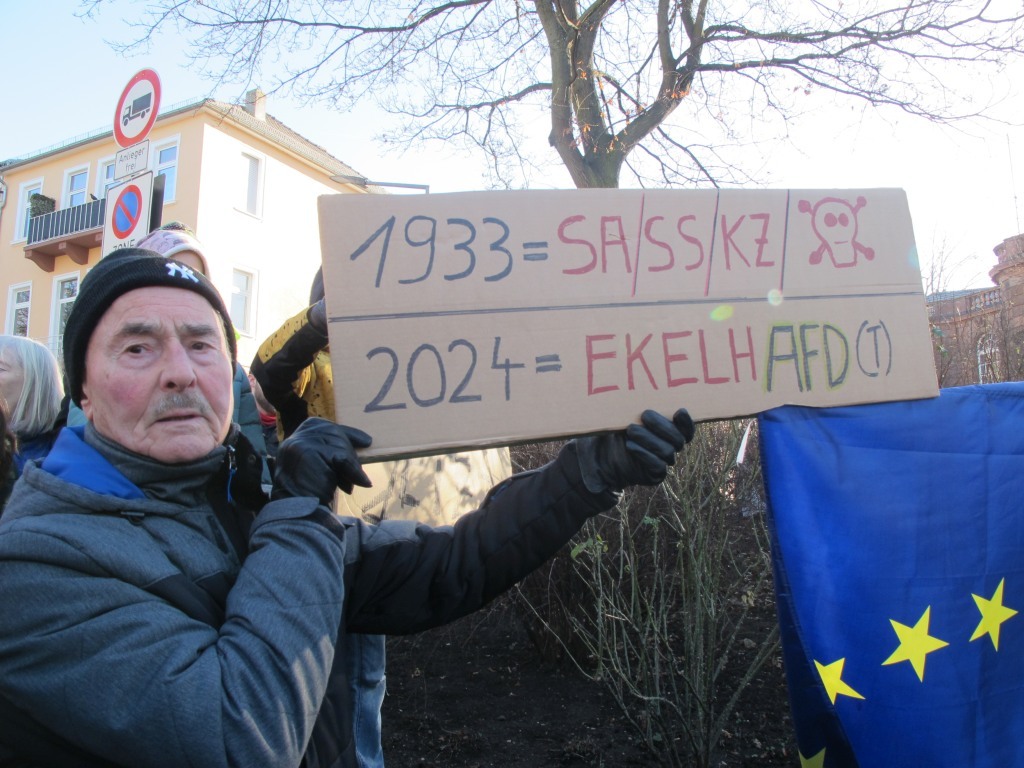 Anlieger
frei
ZONE
1933 = SA/SS/KZ/
2024 = EKELHAFD(T)
NY